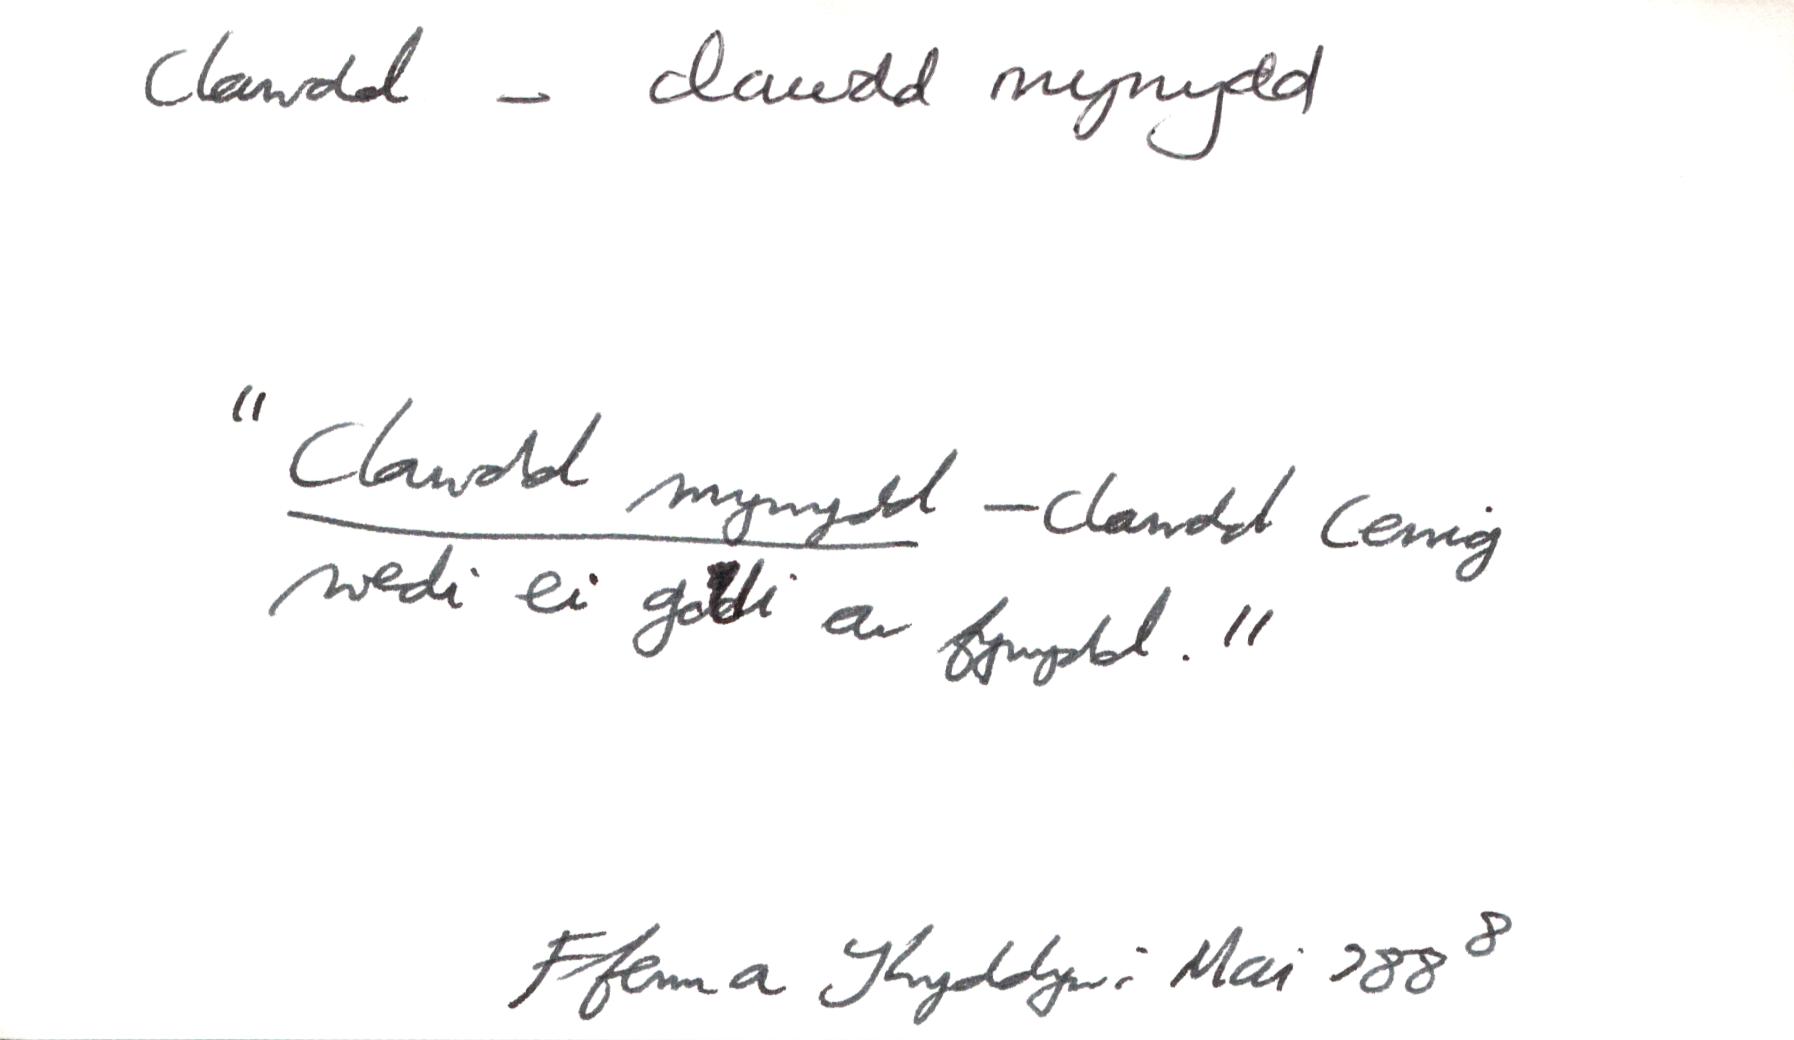 Clawdd - clawdd mynydd
"Clawdd mynydd - clawdd cerrig
wedi ei godi ar fynydd."
Fferm a Thyddyn: Mai '88 8